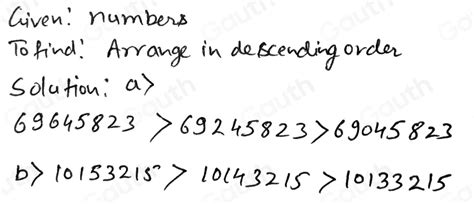 Given: numbers
To find: Arrange in descending order
Solution: a>
69645823 > 69245823 > 69045823
b> 10153215 > 10143215 > 10133215